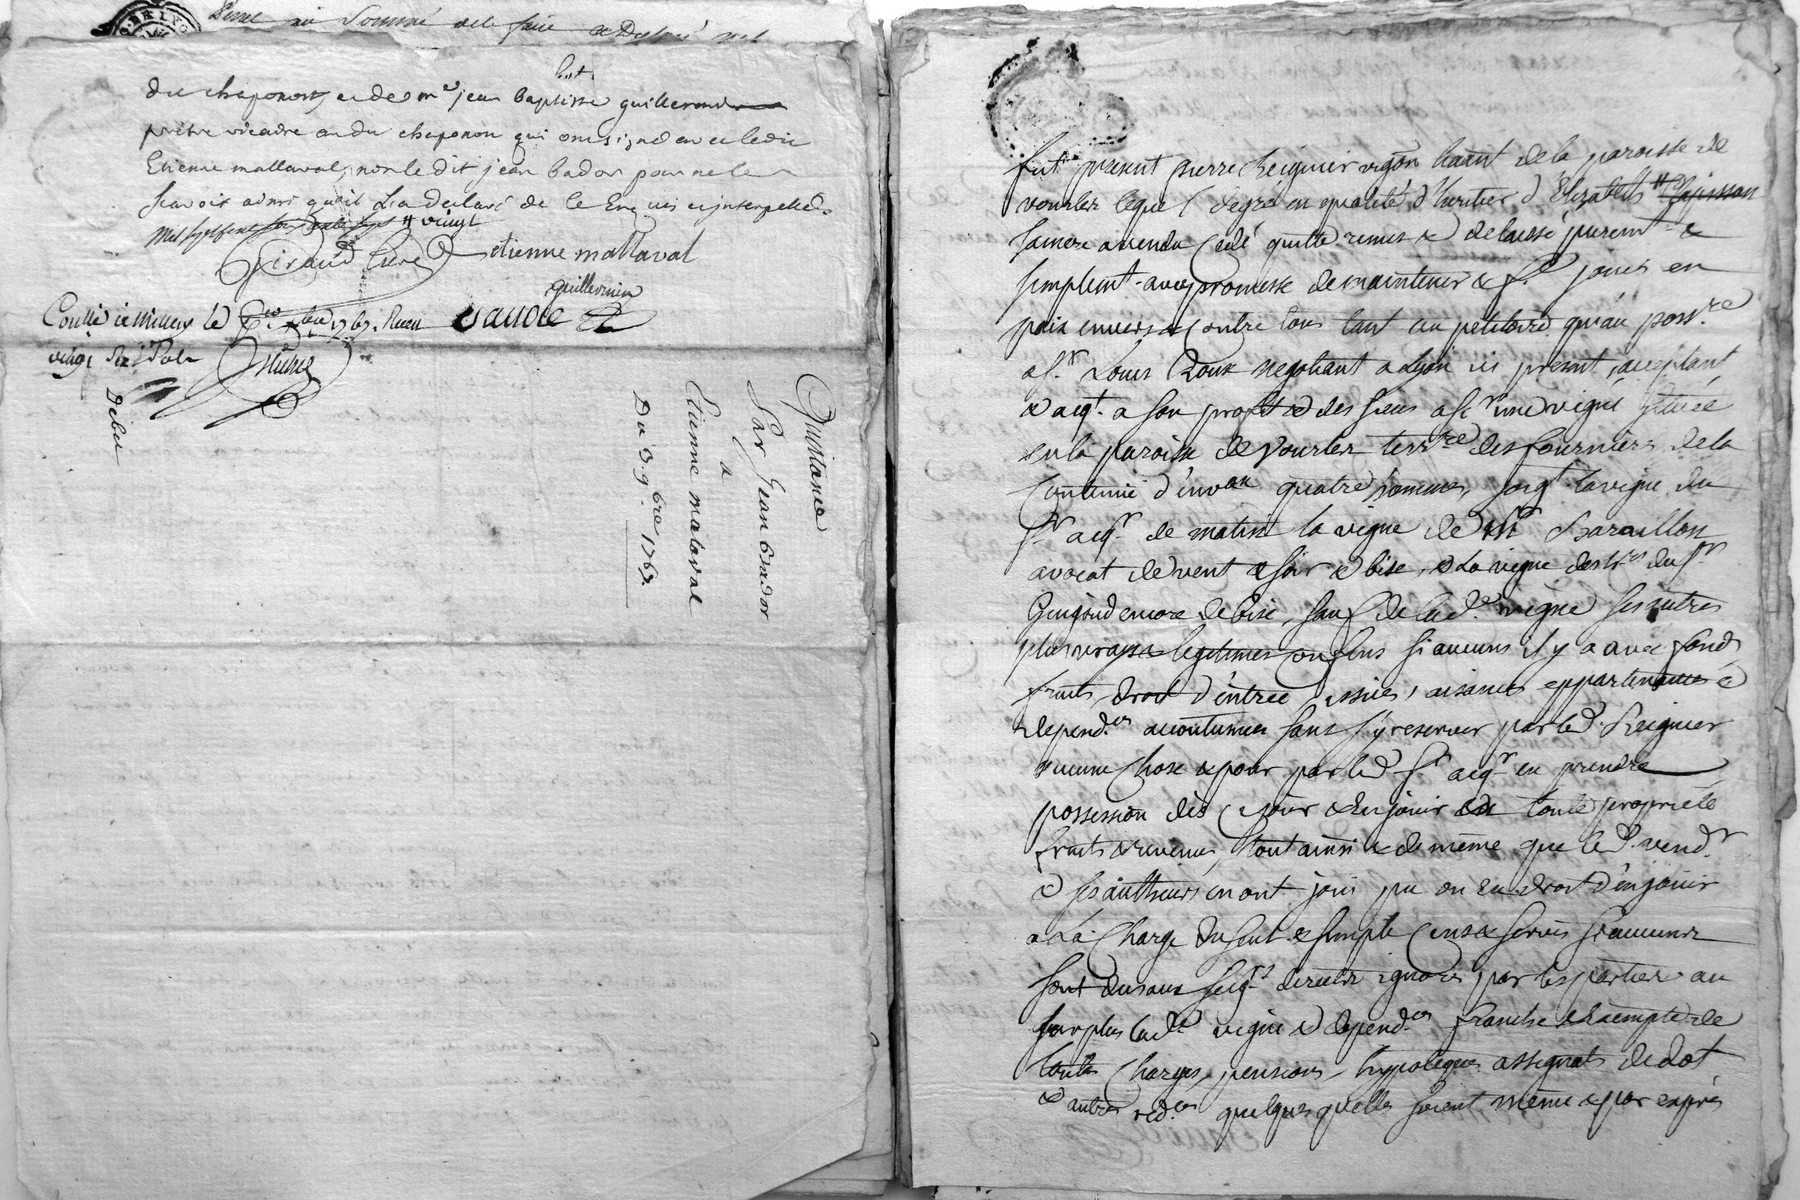 du chaponost, et de mre jean baptiste guillermin
prêtre vicaire audu chaponon qui ont signé avec ledit
Etienne mattaval, non le dit jean bador pour ne le
scavoir ainsi quil la declaré de ce Enquis et interpellé.
vingt
Giraud Curé etienne mattaval
guillermin
Collé le
vingt six Sols
Debu
Quittance
Par Jean Bador
a
Etienne mataval
Du 3. 9.bre 1767.
fut present pierre Reignier vigon habnt de la paroisse de
vourles lequel degré en qualité d'heritier d'Elizabeth
sa mere a vendu cedé quitté remis & delaissé purem.t &
simplem.t avec promesse de maintenir & f.e jouir en
paix envers & contre tous tant au petitoire qu'au poss.re
a s.r Louis Roux negotiant a Lyon ici present, acceptant
& acq.t a son proffit & des siens a sc.r une vigne située
en la paroisse de Vourles terr.re des fourniers de la
Contenue d'env.on quatre hommes, joig.t la vigne du
s.r acq.r de matin la vigne de M.r Baraillon
avocat de vent & soir & bise, & la vigne des h.rs du s.r
Guigoud encore de bise, sauf de lad.e vigne ses autres
plus vrays & legitimes confins si aucuns il y a avec fonds
fruits, droit d'entrée, issües, aisances appartenances &
depend.es accoutumées sans s'y reserver par led. Reignier
aucune chose & pour par led. s.r acq.r en prendre
possession dès ce jour & en jouir en toute propriété
fruits & revenus, tout ainsi & de même que led. vend.r
& ses autheurs en ont joui pu ou eu droit d'en jouir
a La Charge du seul & simple Cens & servis si aucuns
sont dus aux seig.rs directes ignorés par les parties au
surplus lad.e vigne & depend.es franche & exempte de
toutes charges, pensions, hypoteques assignats de dot
& autres red.es quelques quelles soient même & par exprès